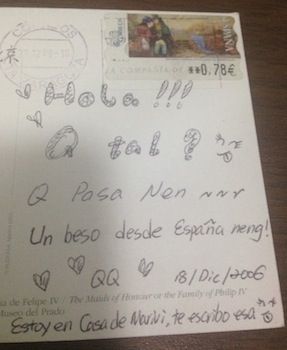 CORREOS
**0,78€
LA COMPAÑIA DE
Hola !!!
Q tal ?
Q Pasa Nen
Un beso desde España neng!
QQ 18/Dic/2006
de Felipe IV The Maids of Honour or the Family of Philip IV
Museo del Prado
Estoy en Casa de Marivi, te escribo esa